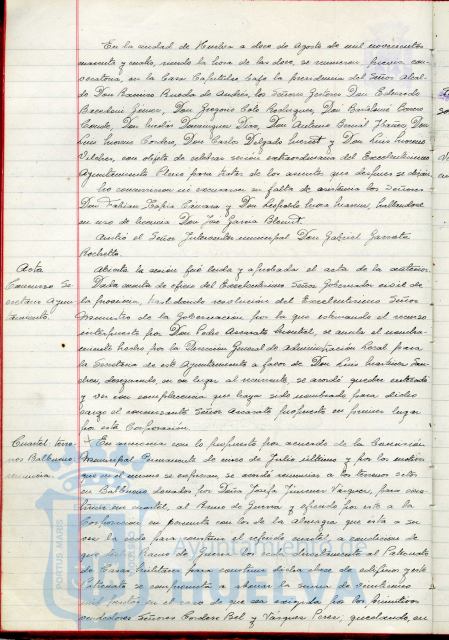 En la ciudad de Huelva a doce de Agosto de mil novecientos
cuarenta y cuatro, siendo la hora de las doce, se reunieron previa con-
vocatoria, en la Casa Capitular bajo la presidencia del Señor Alcal-
de Don Ramiro Rueda de Andrés, los Señores Gestores Don Eduardo
Don Gregorio Cote Rodriguez, Don Bartolomé
Conde, Don Nicolás Dominguez Diaz, Don Antonio
Luis Cordero, Don Carlos Delgado y Don Luis
con objeto de celebrar sesión extraordinaria del Excelentísimo
Ayuntamiento Pleno para tratar de los asuntos que después se dirán.
No concurrieron ni excusaron su falta de asistencia los Señores
Don Fabian Tapia y Don hallándose
en uso de licencia Don José Garcia
Asistió el Señor Interventor municipal Don Gabriel Garrote
Acta
Abierta la sesión fué leida y aprobada el acta de la anterior.
Concurso Se-
cretario Ayun-
tamiento.
Dada cuenta de oficio del Excelentísimo Señor Gobernador civil de
la provincia, trasladando resolución del Excelentísimo Señor
Ministro de la Gobernación por la que estimando el recurso
interpuesto por Don Pedro se anula el nombra-
miento hecho por la Dirección General de Administración Local para
la Secretaria de este Ayuntamiento a favor de Don Luis Martinez San-
chez, designando en su lugar al recurrente, se acordó quedar enterado
y ver con complacencia que haya sido nombrado para dicho
cargo el concursante Señor propuesto en primer lugar
por esta Corporación.
Cuartel: terre-
nos Balbueno
renuncia.
En armonia con lo propuesto por acuerdo de la Comisión
Municipal Permanente de mes de Julio último y por los motivos
que en el mismo se expresan, se acordó renunciar a los terrenos sitos
en Balbueno donados por Doña Josefa Jimenez Vazquez, para cons-
truir un cuartel, al Ramo de Guerra y ofrecido por este a la
Corporación en permuta con los de la que esta a su
vez le cede para construir el referido cuartel, a condicion de
que dicho Ramo de Guerra los ceda directamente al Patronato
de Casas Militares para construir dicha clase de edificios y este
Patronato se comprometa a abonar la suma de veinticinco
mil pesetas en el caso de que sea exigida por los primitivos
vendedores Señores Cordero Bel y Vazquez Perez; quedando, en
PORTUS MARIS
Ayuntamiento de
HUELVA